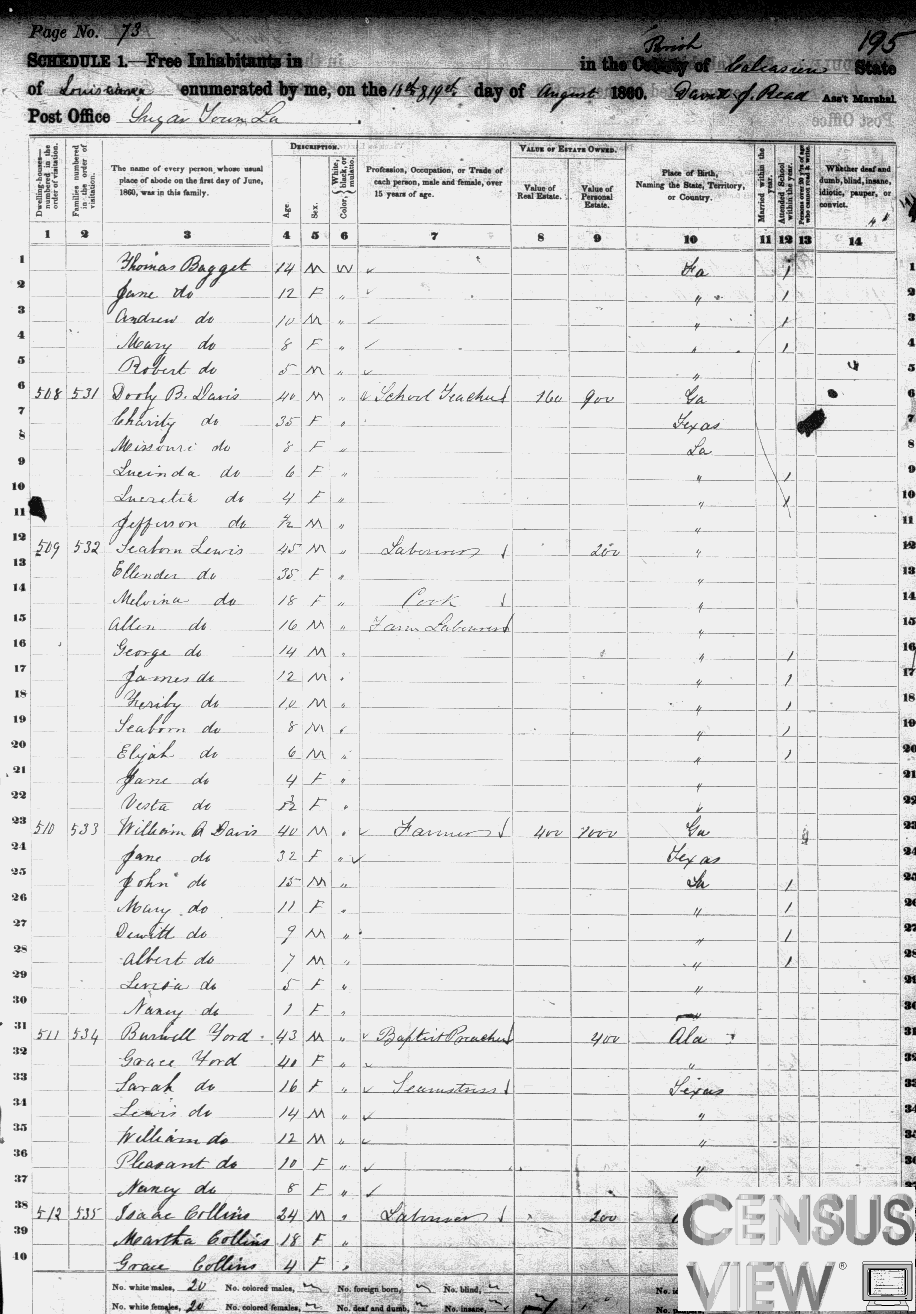 Page No. 73
195
SCHEDULE 1.—Free Inhabitants in in the County of Parish Calcasieu State
of Louisiana enumerated by me, on the 18th & 19th day of August 1860. David J. Read Ass't Marshal
Post Office Sugar Town La
DESCRIPTION. VALUE OF ESTATE OWNED.
Dwelling-houses—numbered in the order of visitation. Families numbered in the order of visitation. The name of every person whose usual place of abode on the first day of June, 1860, was in this family. Age Sex. Color, White, black, or mulatto. Profession, Occupation, or Trade of each person, male and female, over 15 years of age. Value of Real Estate. Value of Personal Estate. Place of Birth, Naming the State, Territory, or Country. Married within the year. Attended School within the year. Persons over 20 y'rs of age who cannot read & write. Whether deaf and dumb, blind, insane, idiotic, pauper, or convict.
1 2 3 4 5 6 7 8 9 10 11 12 13 14
1 Thomas Bagget 14 M W La / 1
2 Jane do 12 F " " / 2
3 Andrew do 10 M " " / 3
4 Mary do 8 F " " / 4
5 Robert do 5 M " " 5
6 508 531 Dooly B. Davis 40 M " School Teacher 160 900 Ga 6
7 Charity do 35 F " Texas 7
8 Missouri do 8 F " La 8
9 Lucinda do 6 F " " / 9
10 Lucretia do 4 F " " 10
11 Jefferson do M " " 11
12 509 532 Seaborn Lewis 45 M " Labourer 200 " 12
13 Ellender do 35 F " " 13
14 Melvina do 18 F " Cook " 14
15 Allen do 16 M " Farm Labourer " 15
16 George do 14 M " " / 16
17 James do 12 M " " / 17
18 do 10 M " " / 18
19 Seaborn do 8 M " " / 19
20 Elijah do 6 M " " / 20
21 Jane do 4 F " " 21
22 Vesta do F " " 22
23 510 533 William A Davis 40 M " Farmer 400 Ga 23
24 Jane do 32 F " Texas 24
25 John do 15 M " La / 25
26 Mary do 11 F " " / 26
27 Dewitt do 9 M " " / 27
28 Albert do 7 M " " / 28
29 do 5 F " " 29
30 Nancy do 1 F " " 30
31 511 534 Burwell Ford 43 M " Baptist Preacher 400 Ala 31
32 Grace Ford 40 F " " 32
33 Sarah do 16 F " Seamstress Texas 33
34 Lewis do 14 M " " 34
35 William do 12 M " " 35
36 Pleasant do 10 F " " 36
37 Nancy do 8 F "
38 512 535 Isaac Collins 24 M " Labourer 200
39 Martha Collins 18 F "
40 Grace Collins 4 F "
No. white males, 20 No. colored males, No. foreign born, No. blind,
No. white females, 20 No. colored females, No. deaf and dumb, No. insane,
CENSUS
VIEW®